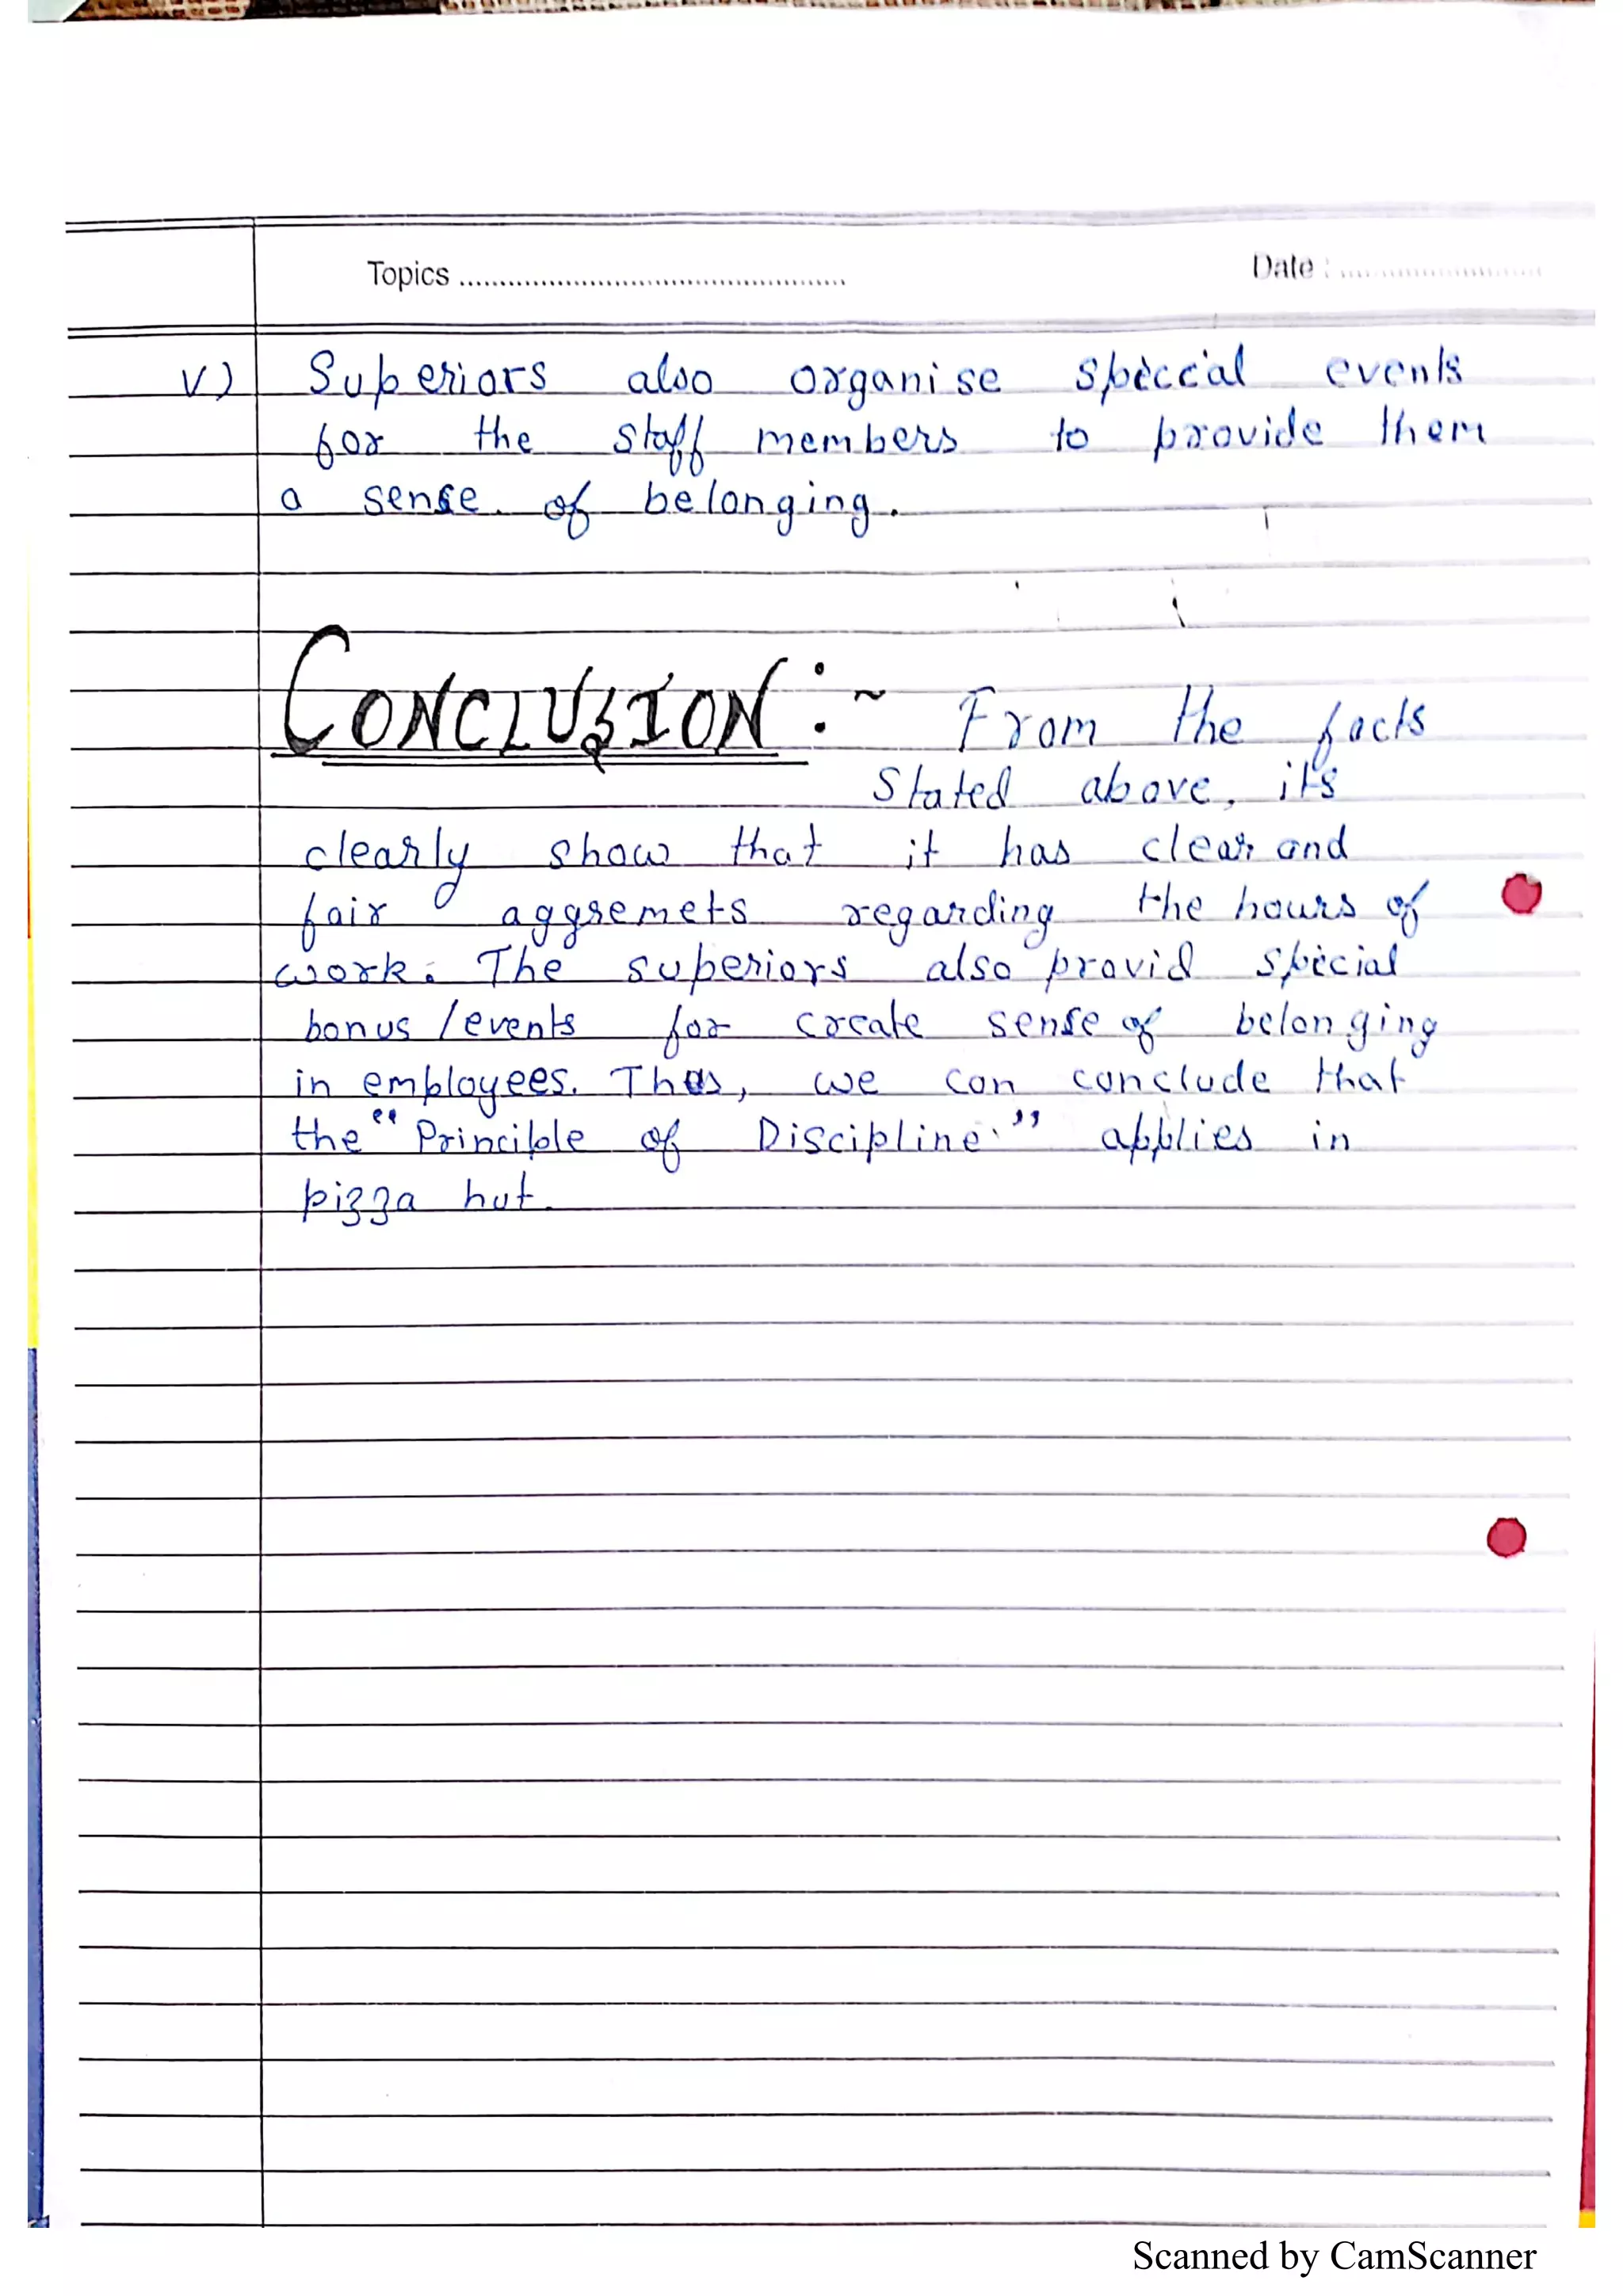 Topics ................................................ Date : ..........................
v) Superiors also organise speccial events
for the staff members to provide them
a sense of belonging.
CONCLUSION :~ From the facts
Stated above, it's
clearly show that it has clear and
fair aggremets regarding the hours of
work. The superiors also provid special
bonus / events for create sense of belonging
in employees. Thus, we can conclude that
the "Principle of Discipline" applies in
pizza hut.
Scanned by CamScanner